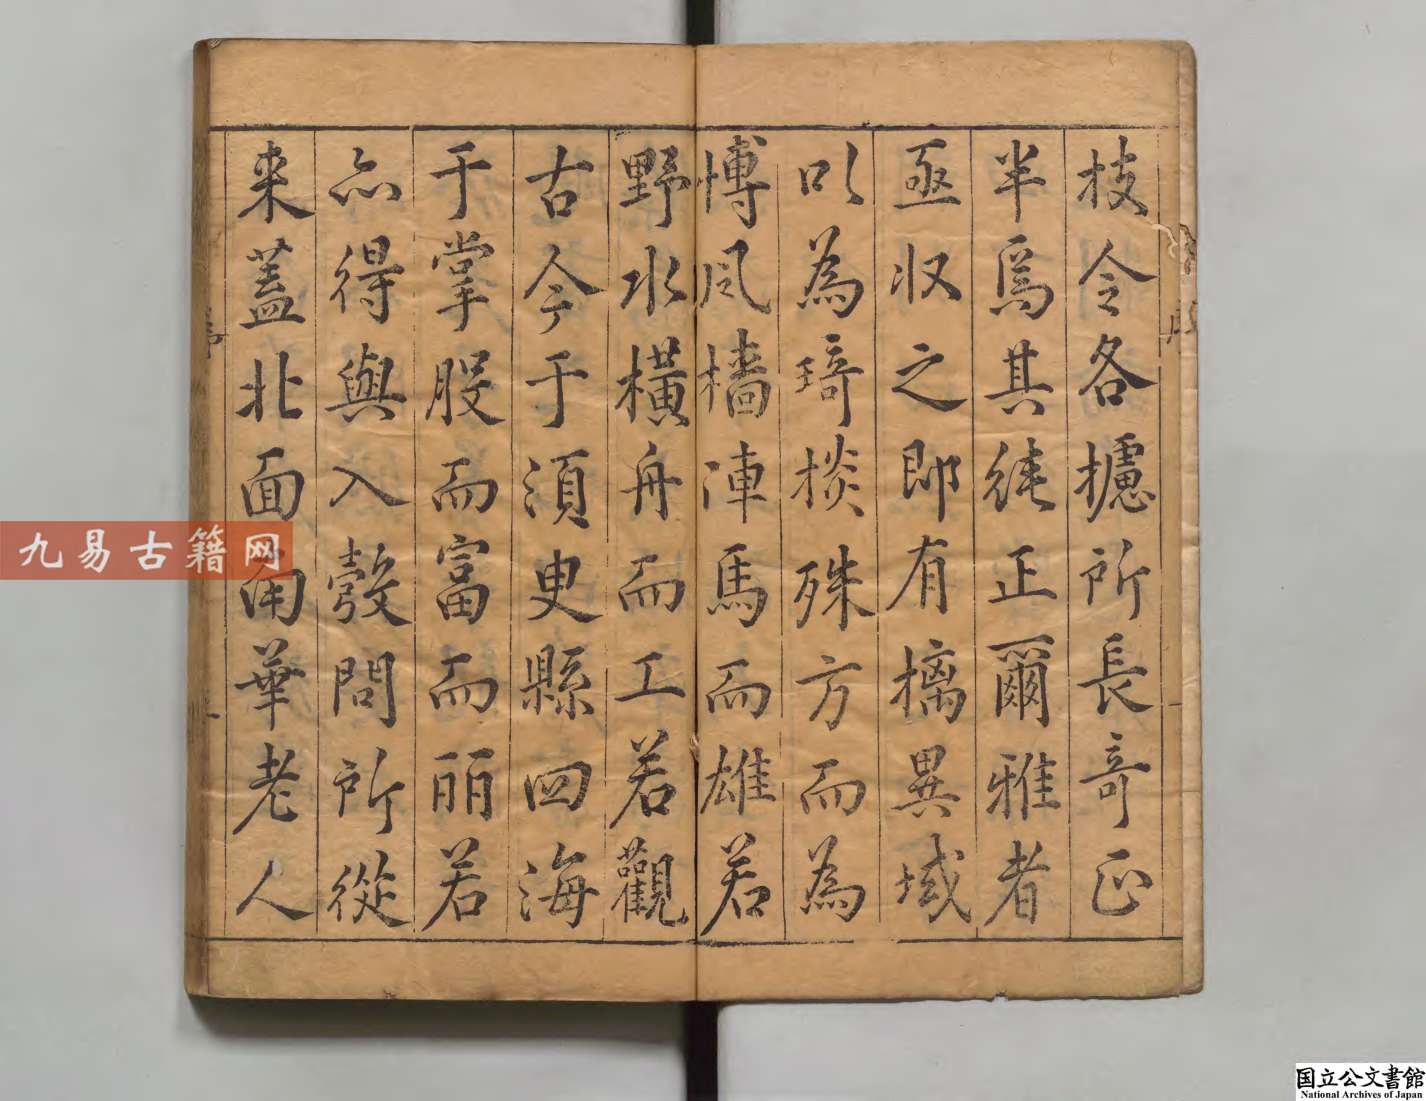 枝令各攄所長奇正
半焉其純正爾雅者
亟收之即有摛異域
以為琦掞殊方而為
博風檣連馬而雄若
野水橫舟而工若觀
古今于須臾縣四海
于掌股而富而丽若
亦得與入彀問所從
来蓋北面南華老人
序
九易古籍网
国立公文書館
National Archives of Japan